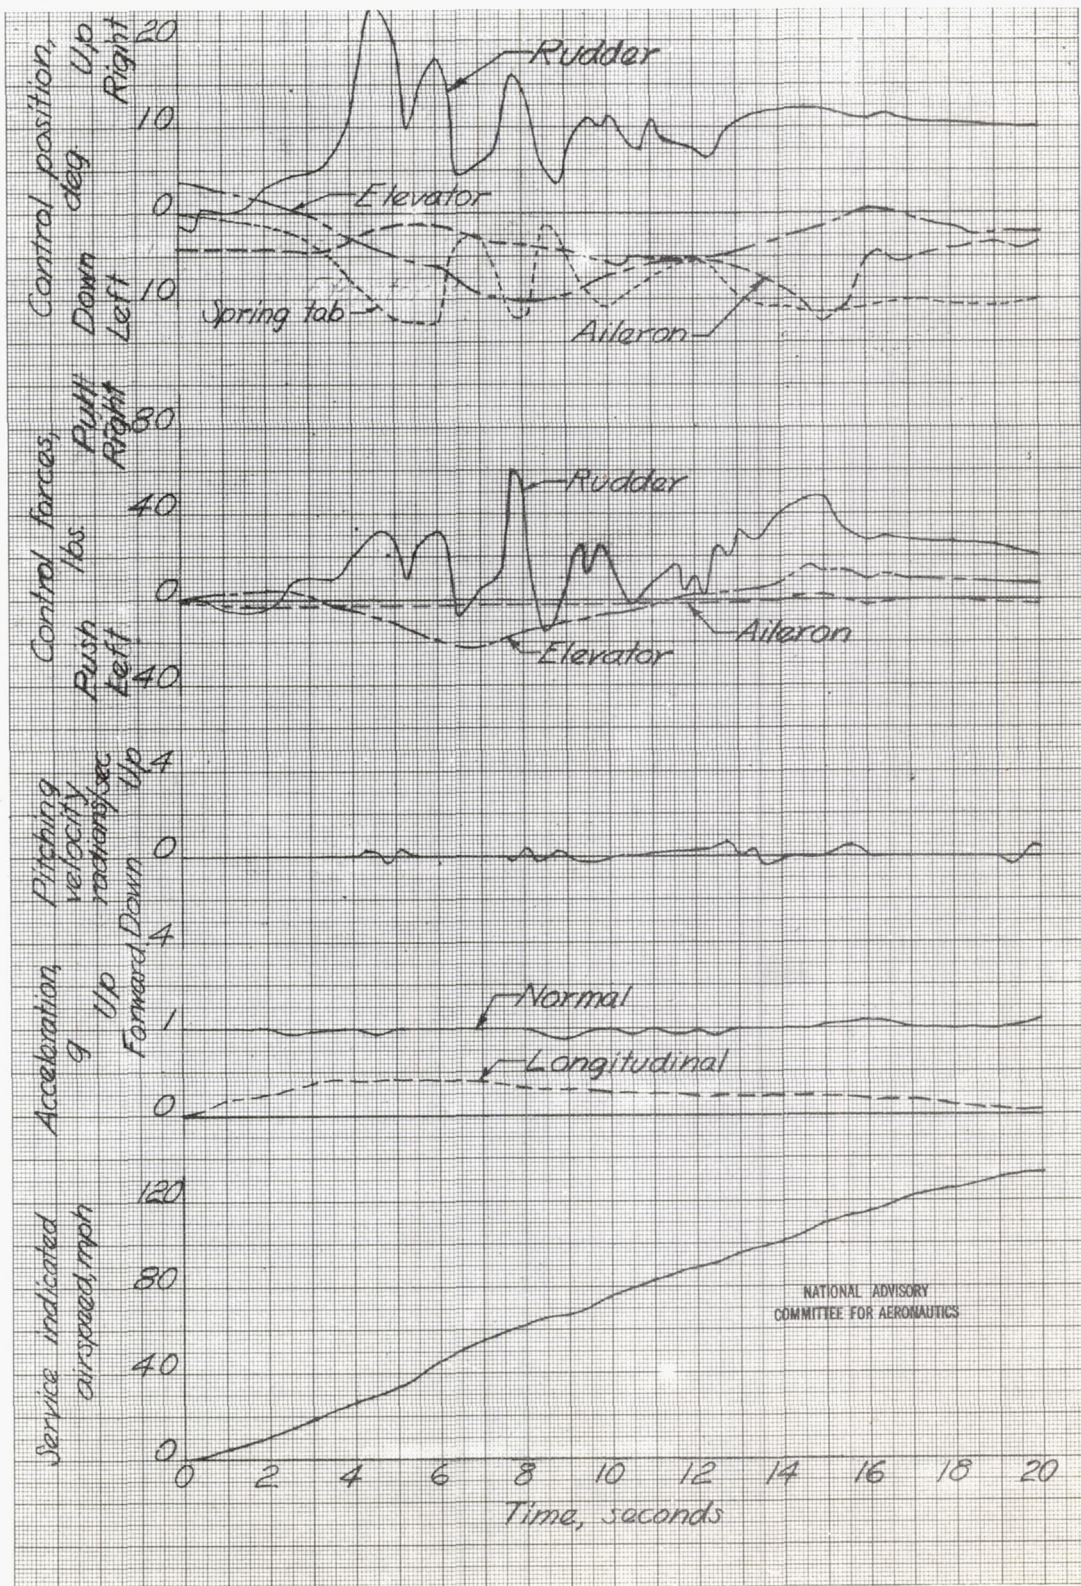 Control position,
deg
Up
Right
Down
Left
20
10
0
10
Rudder
Elevator
Spring tab
Aileron
Control forces,
lbs.
Pull
Right
Push
Left
80
40
0
40
Rudder
Aileron
Elevator
Pitching
velocity
radians/sec
Up
Down
.4
0
.4
Acceleration,
g
Up
Forward
1
0
Normal
Longitudinal
Service indicated
airspeed, mph
120
80
40
0
NATIONAL ADVISORY
COMMITTEE FOR AERONAUTICS
0 2 4 6 8 10 12 14 16 18 20
Time, seconds